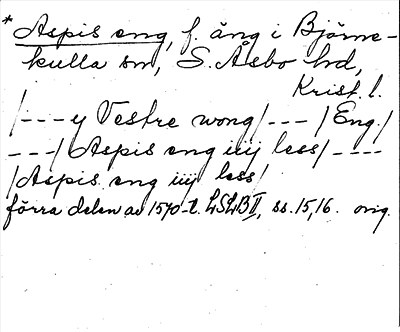 * Aspis eng, f. äng i Björne-
kulla sn, S. Åsbo hd,
Krist. l.
/---y Vestre wong/---/Eng./
---/Aspis eng iiij less/----
/Aspis eng iiij less/
förra delen av 1570-t. LSLB II, ss. 15, 16. orig.